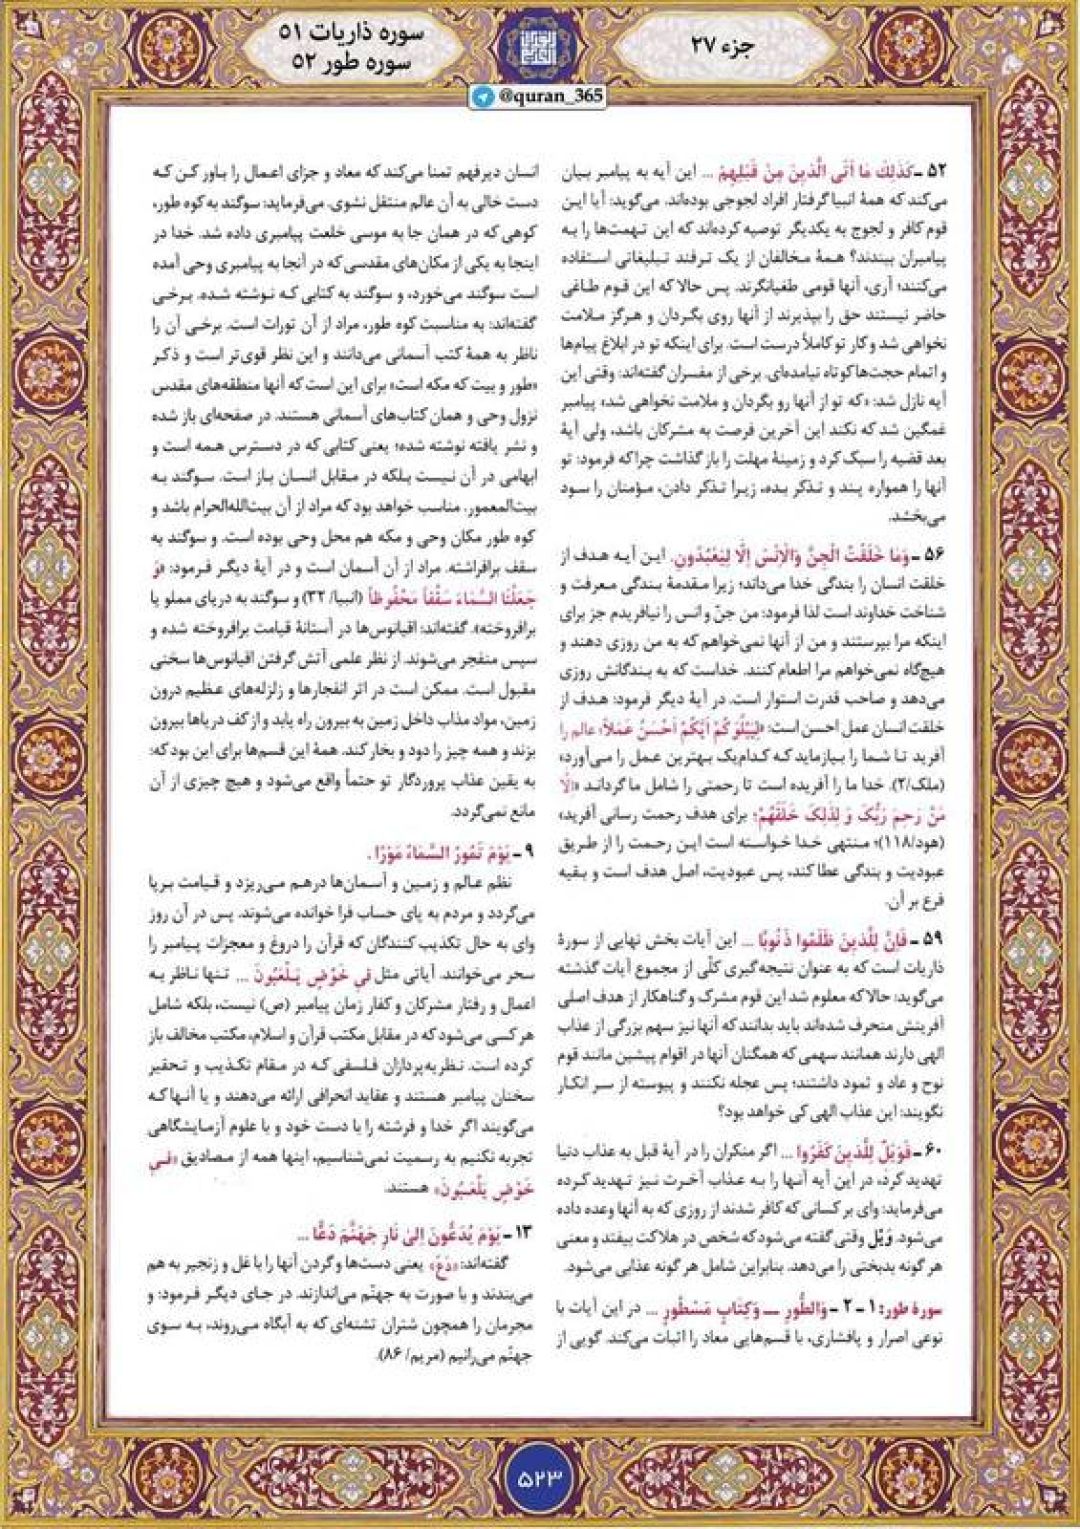 جزء ۲۷
سوره ذاریات ۵۱
سوره طور ۵۲
@quran_365
۵۲ ـ کَذلِكَ مَا اَتَی الَّذینَ مِنْ قَبْلِهِمْ ... این آیه به پیامبر بیان
می‌کند که همهٔ انبیا گرفتار افراد لجوجی بوده‌اند. می‌گوید: آیا این
قوم کافر و لجوج به یکدیگر توصیه کرده‌اند که این تهمت‌ها را به
پیامبران ببندند؟ همهٔ مخالفان از یک ترفند تبلیغاتی استفاده
می‌کنند؛ آری، آنها قومی طغیانگرند. پس حالا که این قوم طاغی
حاضر نیستند حق را بپذیرند از آنها روی بگردان و هرگز ملامت
نخواهی شد و کار تو کاملاً درست است. برای اینکه تو در ابلاغ پیام‌ها
و اتمام حجت‌ها کوتاه نیامده‌ای. برخی از مفسران گفته‌اند: وقتی این
آیه نازل شد: «که تو از آنها رو بگردان و ملامت نخواهی شد» پیامبر
غمگین شد که نکند این آخرین فرصت به مشرکان باشد، ولی آیهٔ
بعد قضیه را سبک کرد و زمینهٔ مهلت را باز گذاشت چرا که فرمود: تو
آنها را همواره پند و تذکر بده، زیرا تذکر دادن، مؤمنان را سود
می‌بخشد.
۵۶ ـ وَما خَلَقْتُ الْجِنَّ وَالْاِنْسَ اِلَّا لِیَعْبُدُونِ. این آیه هدف از
خلقت انسان را بندگی خدا می‌داند؛ زیرا مقدمهٔ بندگی معرفت و
شناخت خداوند است لذا فرمود: من جنّ و انس را نیافریدم جز برای
اینکه مرا بپرستند و من از آنها نمی‌خواهم که به من روزی دهند و
هیچ‌گاه نمی‌خواهم مرا اطعام کنند. خداست که به بندگانش روزی
می‌دهد و صاحب قدرت استوار است. در آیهٔ دیگر فرمود: هدف از
خلقت انسان عمل احسن است: «لِیَبْلُوَکُمْ اَیُّکُمْ اَحْسَنُ عَمَلاً؛ عالم را
آفرید تا شما را بیازماید که کدام‌یک بهترین عمل را می‌آورد»
(ملک/۲). خدا ما را آفریده است تا رحمتی را شامل ما گرداند «اِلَّا
مَنْ رَحِمَ رَبُّکَ وَ لِذلِکَ خَلَقَهُمْ؛ برای هدف رحمت رسانی آفرید»
(هود/۱۱۸)؛ منتهی خدا خواسته است این رحمت را از طریق
عبودیت و بندگی عطا کند، پس عبودیت، اصل هدف است و بقیه
فرع بر آن.
۵۹ ـ فَاِنَّ لِلَّذینَ ظَلَمُوا ذَنُوبًا ... این آیات بخش نهایی از سورهٔ
ذاریات است که به عنوان نتیجه‌گیری کلّی از مجموع آیات گذشته
می‌گوید: حالا که معلوم شد این قوم مشرک و گناهکار از هدف اصلی
آفرینش منحرف شده‌اند باید بدانند که آنها نیز سهم بزرگی از عذاب
الهی دارند همانند سهمی که همگنان آنها در اقوام پیشین مانند قوم
نوح و عاد و ثمود داشتند؛ پس عجله نکنند و پیوسته از سر انکار
نگویند: این عذاب الهی کی خواهد بود؟
۶۰ ـ فَوَیْلٌ لِلَّذینَ کَفَرُوا ... اگر منکران را در آیهٔ قبل به عذاب دنیا
تهدید کرد، در این آیه آنها را به عذاب آخرت نیز تهدید کرده
می‌فرماید: وای بر کسانی که کافر شدند از روزی که به آنها وعده داده
می‌شود. وَیْل وقتی گفته می‌شود که شخص در هلاکت بیفتد و معنی
هر گونه بدبختی را می‌دهد. بنابراین شامل هر گونه عذابی می‌شود.
سورهٔ طور: ۱ ـ ۲ ـ وَالطُّورِ ـــ وَکِتابٍ مَسْطُورٍ ... در این آیات با
نوعی اصرار و پافشاری، با قسم‌هایی معاد را اثبات می‌کند. گویی از
انسان دیرفهم تمنا می‌کند که معاد و جزای اعمال را باور کن که
دست خالی به آن عالم منتقل نشوی. می‌فرماید: سوگند به کوه طور،
کوهی که در همان جا به موسی خلعت پیامبری داده شد. خدا در
اینجا به یکی از مکان‌های مقدسی که در آنجا به پیامبری وحی آمده
است سوگند می‌خورد، و سوگند به کتابی که نوشته شده. برخی
گفته‌اند: به مناسبت کوه طور، مراد از آن تورات است. برخی آن را
ناظر به همهٔ کتب آسمانی می‌دانند و این نظر قوی‌تر است و ذکر
«طور و بیت که مکه است» برای این است که آنها منطقه‌های مقدس
نزول وحی و همان کتاب‌های آسمانی هستند. در صفحه‌ای باز شده
و نشر یافته نوشته شده؛ یعنی کتابی که در دسترس همه است و
ابهامی در آن نیست بلکه در مقابل انسان باز است. سوگند به
بیت‌المعمور. مناسب خواهد بود که مراد از آن بیت‌الله‌الحرام باشد و
کوه طور مکان وحی و مکه هم محل وحی بوده است. و سوگند به
سقف برافراشته. مراد از آن آسمان است و در آیهٔ دیگر فرمود: «وَ
جَعَلْنَا السَّمَاءَ سَقْفاً مَحْفُوظاً (انبیا/ ۳۲) و سوگند به دریای مملو یا
برافروخته». گفته‌اند: اقیانوس‌ها در آستانهٔ قیامت برافروخته شده و
سپس منفجر می‌شوند. از نظر علمی آتش گرفتن اقیانوس‌ها سختی
مقبول است. ممکن است در اثر انفجارها و زلزله‌های عظیم درون
زمین، مواد مذاب داخل زمین به بیرون راه یابد و از کف دریاها بیرون
بزند و همه چیز را دود و بخار کند. همهٔ این قسم‌ها برای این بود که:
به یقین عذاب پروردگار تو حتماً واقع می‌شود و هیچ چیزی از آن
مانع نمی‌گردد.
۹ ـ یَوْمَ تَمُورُ السَّمَاءُ مَوْرًا .
نظم عالم و زمین و آسمان‌ها درهم می‌ریزد و قیامت برپا
می‌گردد و مردم به پای حساب فرا خوانده می‌شوند. پس در آن روز
وای به حال تکذیب کنندگان که قرآن را دروغ و معجزات پیامبر را
سحر می‌خوانند. آیاتی مثل فی خَوْضٍ یَلْعَبُونَ ... تنها ناظر به
اعمال و رفتار مشرکان و کفار زمان پیامبر (ص) نیست، بلکه شامل
هر کسی می‌شود که در مقابل مکتب قرآن و اسلام، مکتب مخالف باز
کرده است. نظریه‌پردازان فلسفی که در مقام تکذیب و تحقیر
سخنان پیامبر هستند و عقاید انحرافی ارائه می‌دهند و یا آنها که
می‌گویند اگر خدا و فرشته را با دست خود و با علوم آزمایشگاهی
تجربه نکنیم به رسمیت نمی‌شناسیم، اینها همه از مصادیق «فی
خَوْضٍ یَلْعَبُونَ» هستند.
۱۳ ـ یَوْمَ یُدَعُّونَ اِلیٰ نَارِ جَهَنَّمَ دَعًّا ...
گفته‌اند: «دَعّ» یعنی دست‌ها و گردن آنها را با غل و زنجیر به هم
می‌بندند و با صورت به جهنّم می‌اندازند. در جای دیگر فرمود: و
مجرمان را همچون شتران تشنه‌ای که به آبگاه می‌روند، به سوی
جهنّم می‌رانیم (مریم/ ۸۶).
۵۲۳